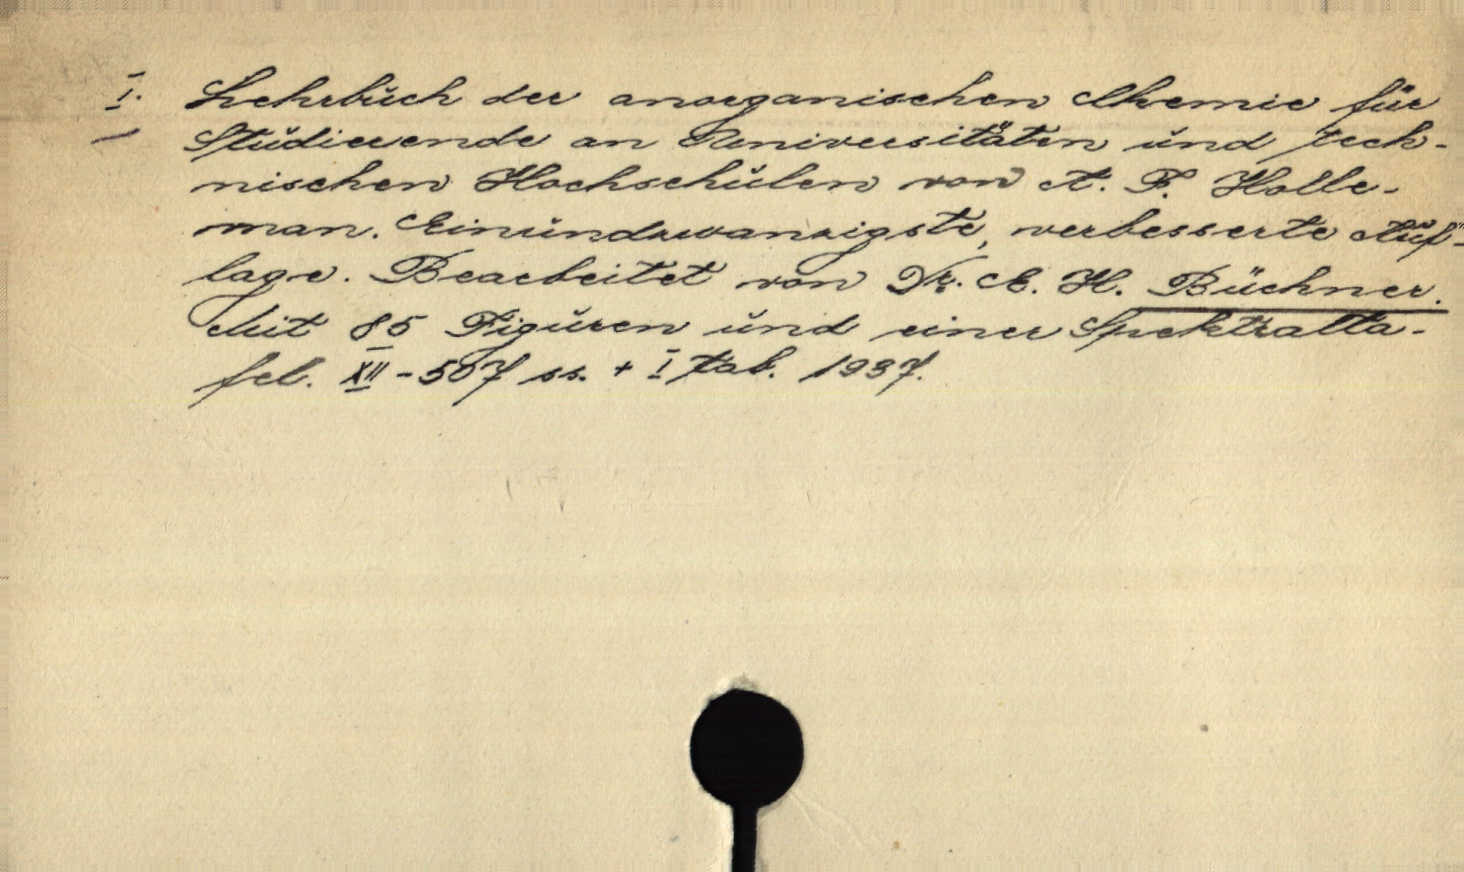 I. Lehrbuch der anorganischen Chemie für
Studierende an Universitäten und tech-
nischen Hochschulen von A. F. Holle-
man. Einundzwanzigste, verbesserte Auf-
lage. Bearbeitet von Dr. E. H. Büchner.
Mit 85 Figuren und einer Spektralta-
fel. XII - 507 ss. + I tab. 1937.